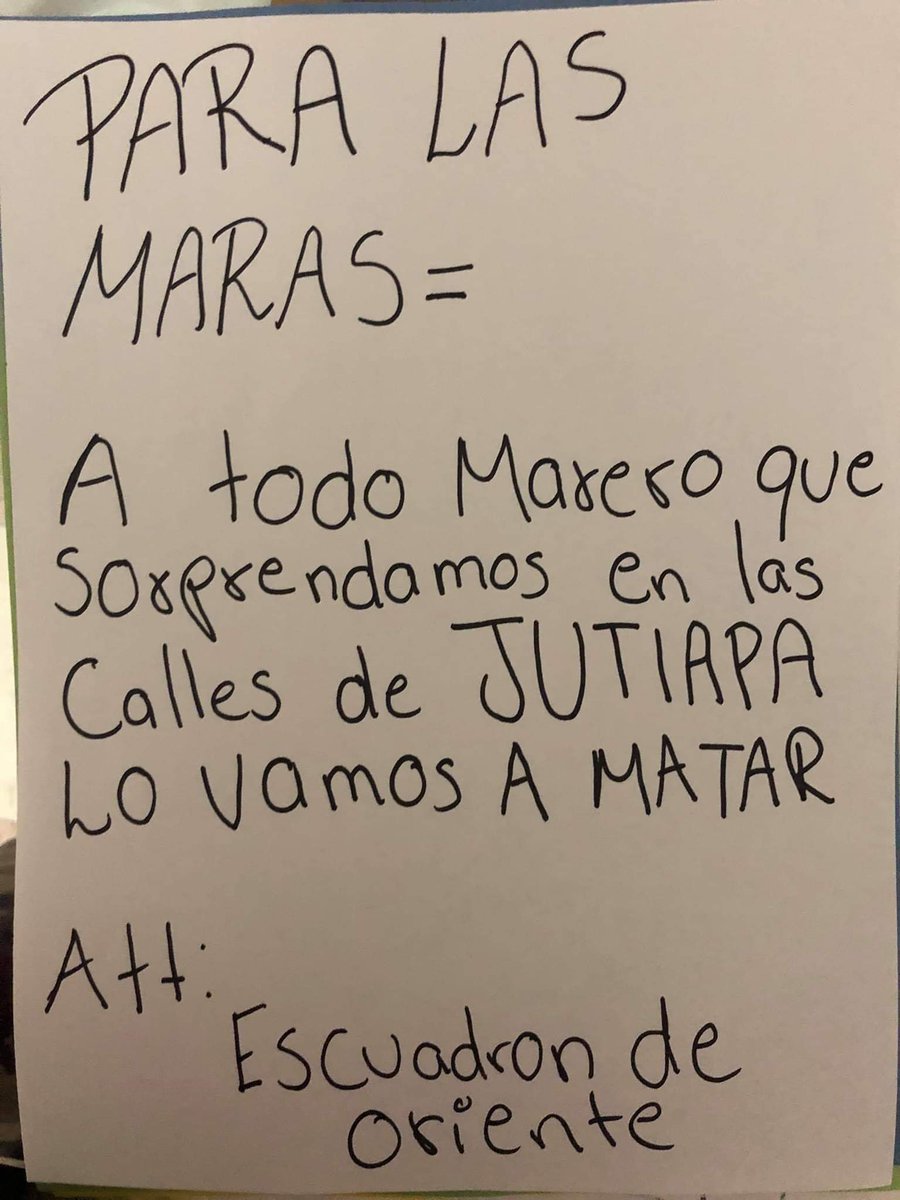 PARA LAS
MARAS=
A todo Marero que
Sorprendamos en las
Calles de JUTIAPA
Lo vamos A MATAR
Att:
Escuadron de
oriente